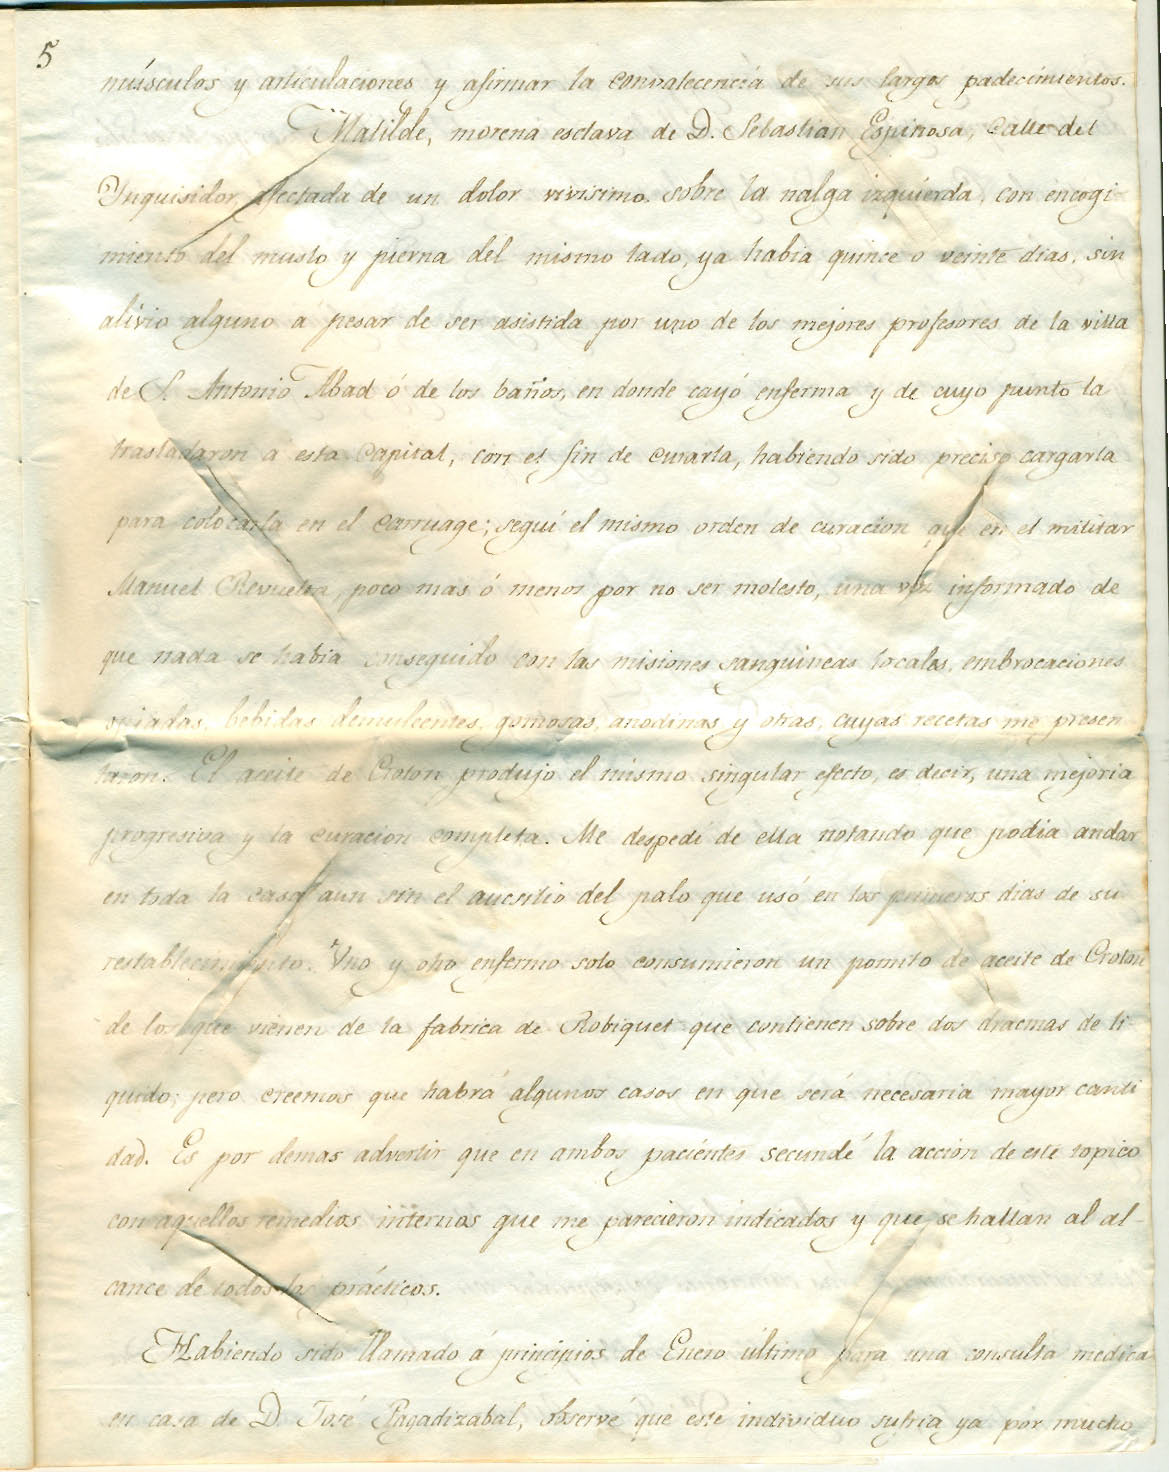 5
músculos y articulaciones y afirmar la convalecencia de sus largos padecimientos.
Matilde, morena esclava de D. Sebastian Espinosa, Calle del
Ynquisidor afectada de un dolor vivisimo sobre la nalga izquierda, con encogi-
miento del muslo y pierna del mismo lado, ya habia quince o veinte dias, sin
alivio alguno á pesar de ser asistida por uno de los mejores profesores de la villa
de S. Antonio Abad ó de los baños, en donde cayó enferma y de cuyo punto la
trasladaron á esta Capital, con el fin de curarla, habiendo sido preciso cargarla
para colocarla en el carruage; seguí el mismo orden de curacion que en el militar
Manuel Revuelta, poco mas ó menos por no ser molesto, una vez informado de
que nada se habia conseguido con las misiones sanguineas locales, embrocaciones
opiadas, bebidas demulcentes, gomosas, anodinas y otras, cuyas recetas me presen
taron. El aceite de Croton produjo el mismo singular efecto, es decir, una mejoria
progresiva y la curacion completa. Me despedí de ella notando que podia andar
en toda la casa aun sin el aucsilio del palo que usó en los primeros dias de su
restablecimiento. Uno y otro enfermo solo consumieron un pomito de aceite de Croton
de los que vienen de la fabrica de Robiquet que contienen sobre dos dracmas de li-
quido; pero creemos que habrá algunos casos en que será necesaria mayor canti
dad. Es por demas advertir que en ambos pacientes secundé la acción de este topico
con aquellos remedios internos que me parecieron indicados y que se hallan al al-
cance de todos los prácticos.
Habiendo sido llamado á principios de Enero último para una consulta medica
en casa de D. José Pagadizabal, observé que este individuo sufria ya por mucho